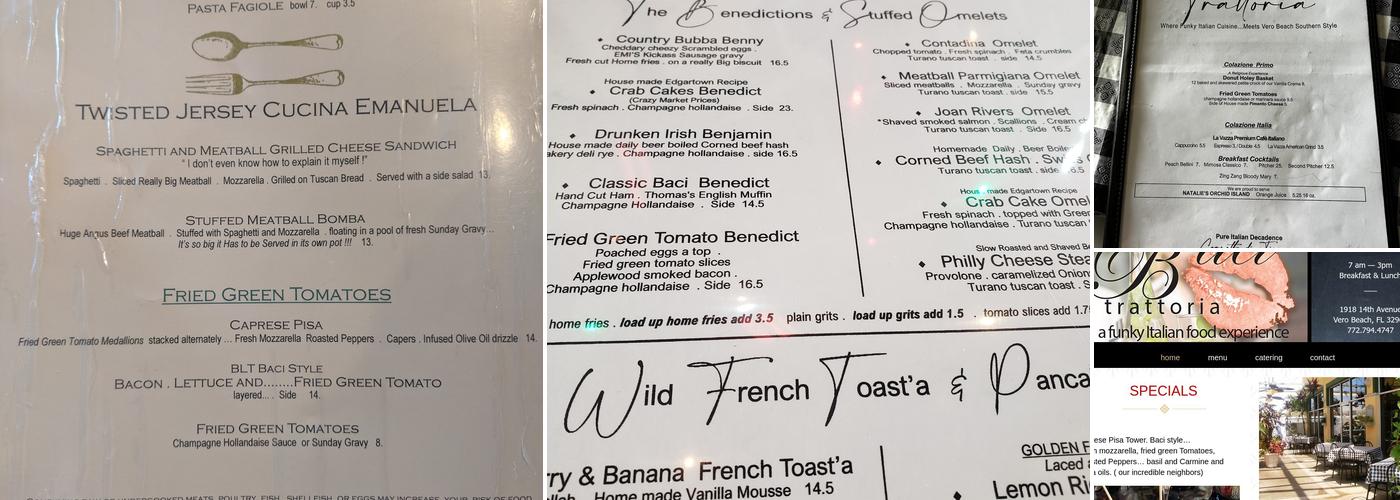 PASTA FAGIOLE bowl 7. cup 3.5
TWISTED JERSEY CUCINA EMANUELA
SPAGHETTI AND MEATBALL GRILLED CHEESE SANDWICH
" I don't even know how to explain it myself !"
Spaghetti . Sliced Really Big Meatball . Mozzarella . Grilled on Tuscan Bread . Served with a side salad 13.
STUFFED MEATBALL BOMBA
Huge Angus Beef Meatball . Stuffed with Spaghetti and Mozzarella . floating in a pool of fresh Sunday Gravy...
It's so big it Has to be Served in its own pot !!! 13.
FRIED GREEN TOMATOES
CAPRESE PISA
Fried Green Tomato Medallions stacked alternately ... Fresh Mozzarella Roasted Peppers . Capers . Infused Olive Oil drizzle 14.
BLT BACI STYLE
BACON . LETTUCE AND........FRIED GREEN TOMATO
layered... . Side 14.
FRIED GREEN TOMATOES
Champagne Hollandaise Sauce or Sunday Gravy 8.
The Benedictions & Stuffed Omelets
Country Bubba Benny
Cheddary cheezy Scrambled eggs .
EMI'S Kickass Sausage gravy
Fresh cut Home fries . on a really Big biscuit 16.5
House made Edgartown Recipe
Crab Cakes Benedict
(Crazy Market Prices)
Fresh spinach . Champagne hollandaise . Side 23.
Drunken Irish Benjamin
House made daily beer boiled Corned beef hash
akery deli rye . Champagne hollandaise . side 16.5
Classic Baci Benedict
Hand Cut Ham . Thomas's English Muffin
Champagne Hollandaise . Side 14.5
Fried Green Tomato Benedict
Poached eggs a top .
Fried green tomato slices
Applewood smoked bacon .
Champagne hollandaise . Side 16.5
Contadina Omelet
Chopped tomato . Fresh spinach . Feta crumbles
Turano tuscan toast . side 14.5
Meatball Parmigiana Omelet
Sliced meatballs . Mozzarella . Sunday gravy
Turano tuscan toast . side 15.5
Joan Rivers Omelet
*Shaved smoked salmon . Scallions . Cream ch
Turano tuscan toast . Side 16.5
Homemade Daily . Beer Boile
Corned Beef Hash . Swiss
Turano tuscan toast . side
House made Edgartown Recipe
Crab Cake Omel
Fresh spinach . topped with Green
Champagne hollandaise . Turano tuscan
Slow Roasted and Shaved Be
Philly Cheese Stea
Provolone . caramelized Onion
Turano tuscan toast . S
home fries . load up home fries add 3.5 plain grits . load up grits add 1.5 . tomato slices add 1.7
Wild French Toast'a & Panca
ry & Banana French Toast'a
Home made Vanilla Mousse 14.5
GOLDEN F
Laced
Lemon Ri
Trattoria
Where Funky Italian Cuisine...Meets Vero Beach Southern Style
Colazione Primo
A Belgique Experience
Donut Holey Basket
12 baked and skewered petite crock of our Vanilla Crema 9.
Fried Green Tomatoes
champagne hollandaise or marinara sauce 9.5
Side of House made Pimento Cheese
Colazione Italia
La Vazza Premium Café Italiano
Cappuccino 5.5 Espresso 3./ Double 4.5 La Vazza American Grind 3.5
Breakfast Cocktails
Peach Bellini 7. Mimosa Classico 7. Pitcher 25. Second Pitcher 12.5
Zing Zang Bloody Mary 7.
We are proud to serve
NATALIE'S ORCHID ISLAND Orange Juice 5.25 16 oz.
Pure Italian Decadence
Baci
trattoria
a funky Italian food experience
7 am — 3pm
Breakfast & Lunch
1918 14th Avenue
Vero Beach, FL 3296
772.794.4747
home menu catering contact
SPECIALS
ese Pisa Tower. Baci style...
h mozzarella, fried green Tomatoes,
sted Peppers... basil and Carmine and
a oils. ( our incredible neighbors)